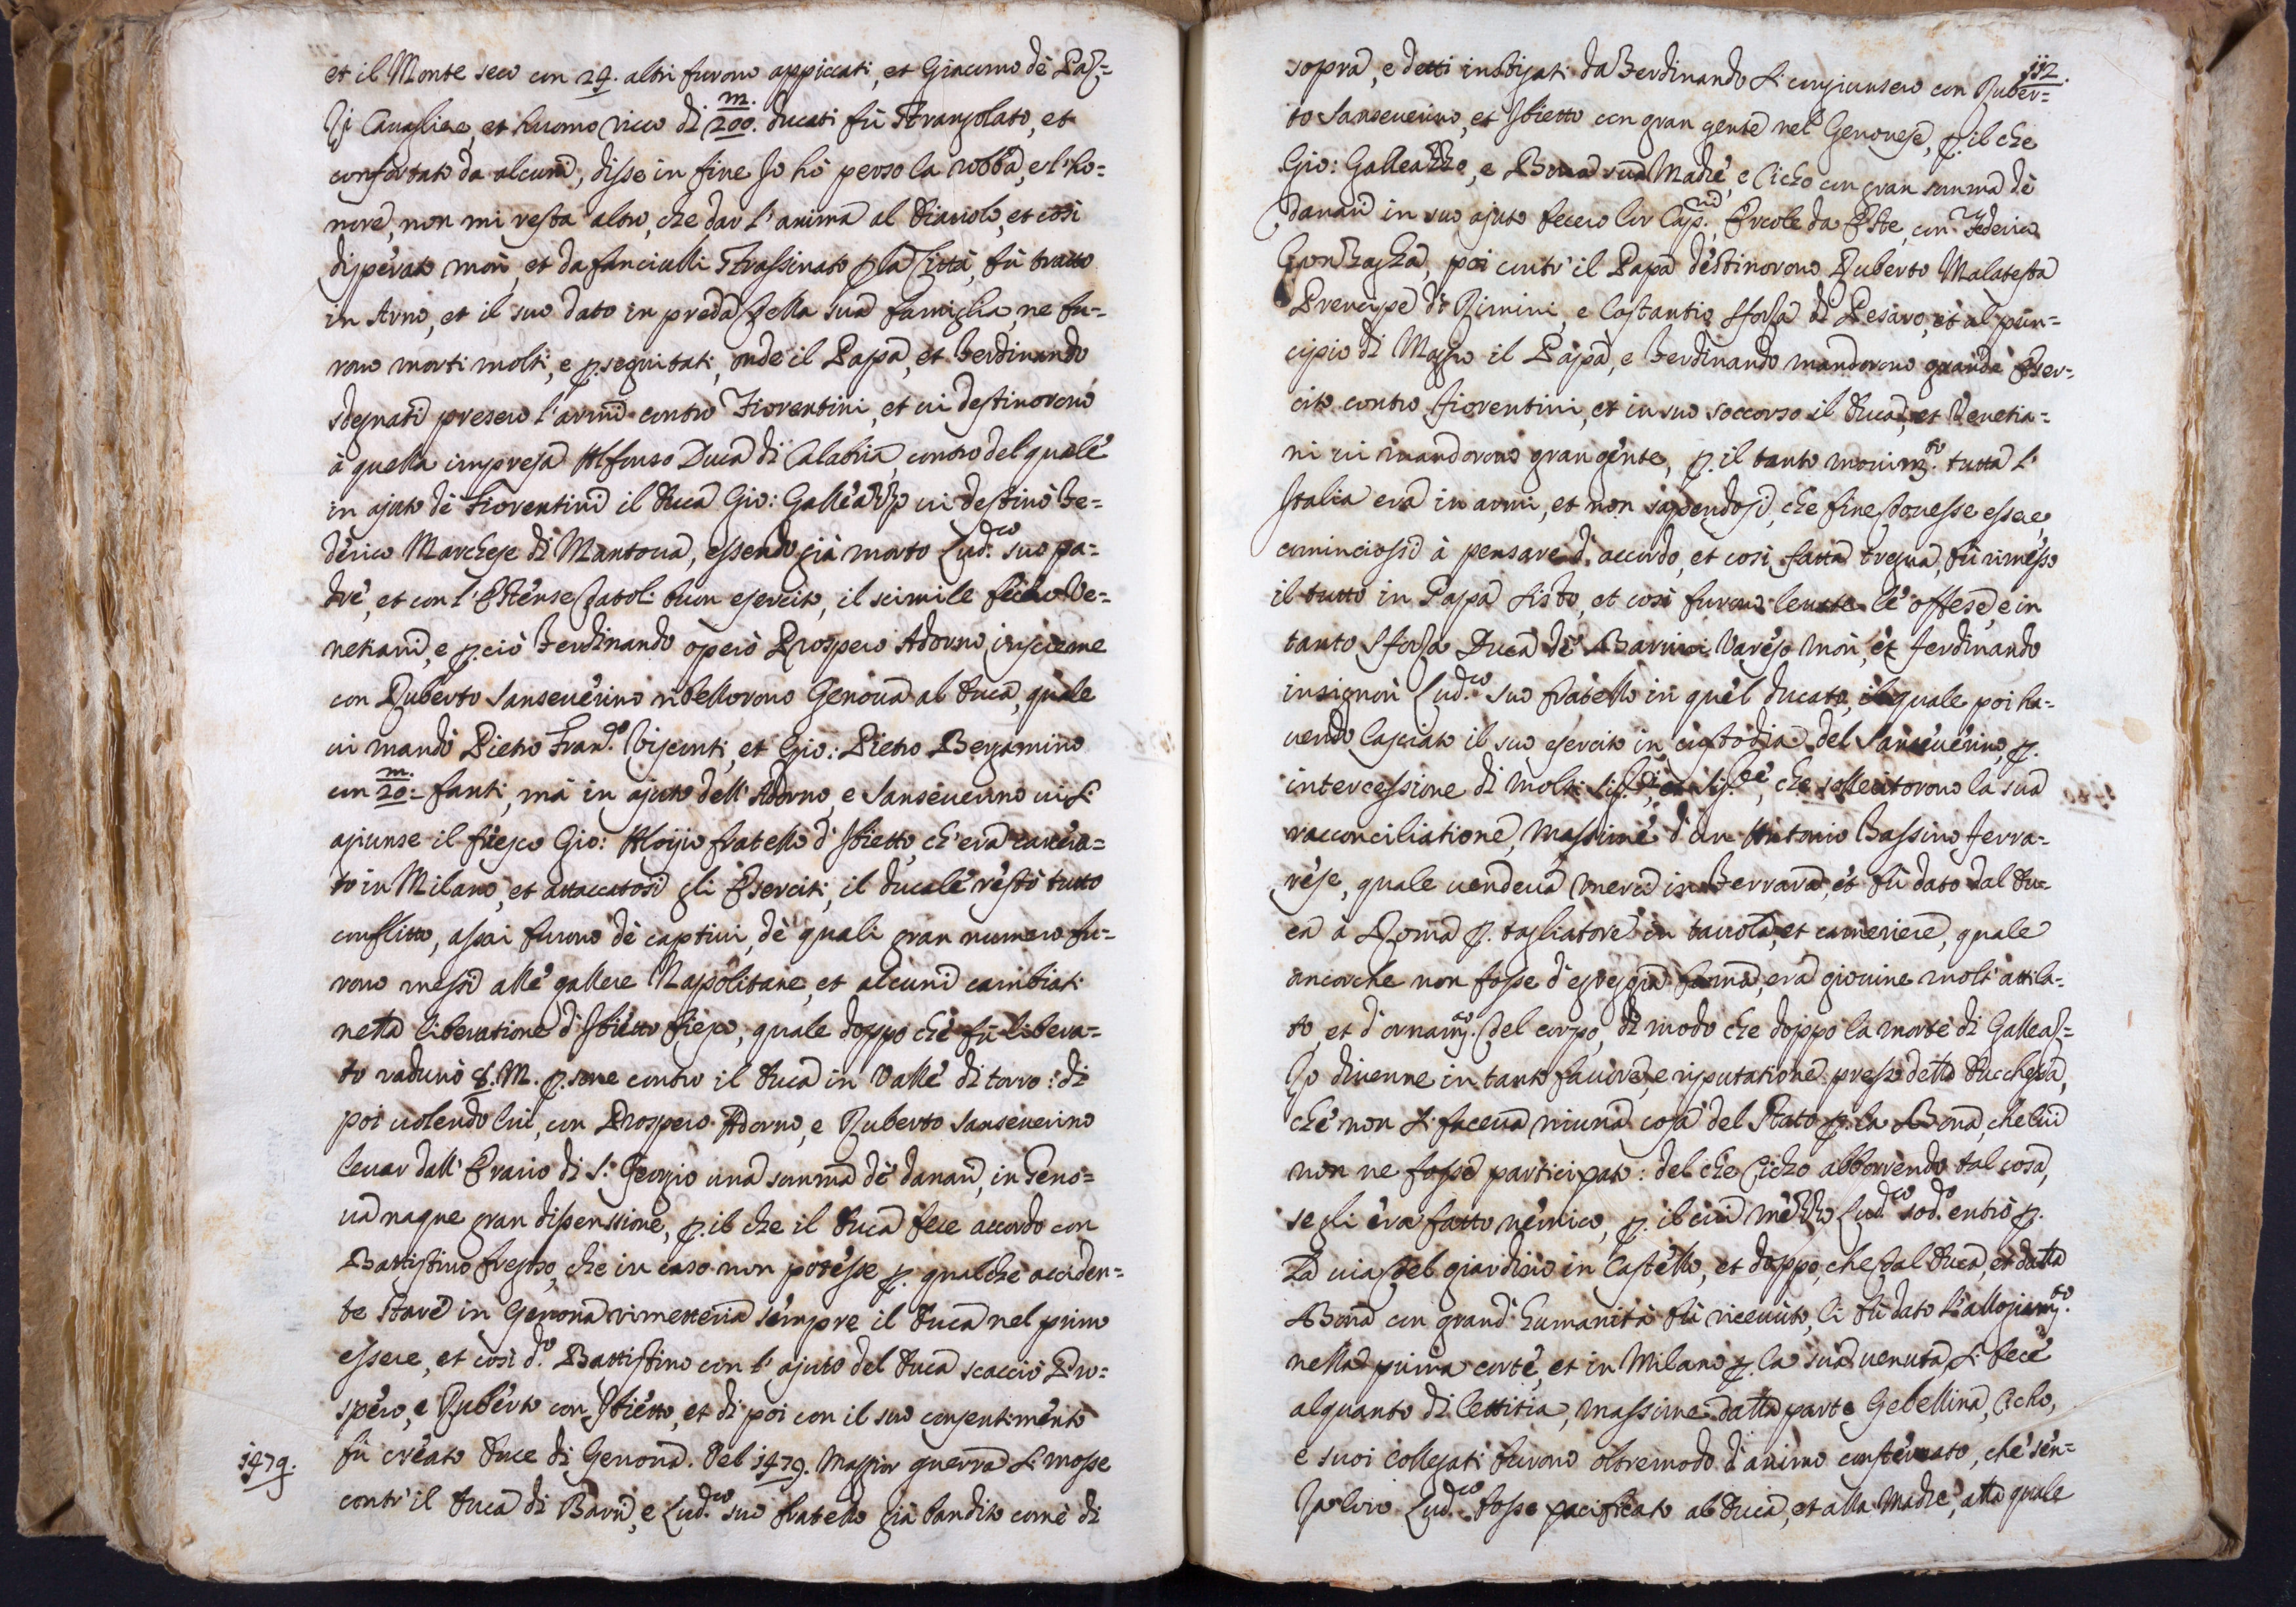 et il Monte seco con 24. altri furono appiccati, et Giacomo dè Paz=
zi Cavagliere, et huomo ricco di 200.m ducati fù strangolato, et
confortato da alcuni, disse in fine Io hò perso la robba, e l'ho=
nore, non mi resta altro, che dar l'anima al diavolo, et così
disperato morì, et da fanciulli strassinato p la Città, fù tratto
in Arno, et il suo dato in preda della sua famiglia, ne fu=
rono morti molti, e p.seguitati, onde il Papa, et Ferdinando
sdegnati presero l'armi contro Fiorentini, et vi destinorono
à quella impresa Alfonso Duca di Calabria, contro del quale
in ajuto dè Fiorentini il Duca Gio: Galleazzo vi destinò Fe=
derico Marchese di Mantova, essendo già morto Lud.co suo pa=
dre, et con l'Estense datoli buon esercito, il scimile fecero Ve=
netiani, e p. ciò Ferdinando operò Prospero Adorno, insieme
con Ruberto Sanseverino ribellorono Genova al Duca, quale
vi mandò Pietro Fran.co Visconti, et Gio: Pietro Bergamino
con 20.m fanti, mà in ajuto dell'Adorno, e Sanseverino vi si
agiunse il fiesco Gio: Aloijio fratello d'Ibietto, ch'era carcera=
to in Milano, et attaccatosi gli Eserciti, il ducale restò tutto
conflitto, assai furono dè captivi, dè quali gran numero fu=
rono messi alle gallere Napolitane, et alcuni cambiati
nella liberatione d'Ibietto fiesco, quale doppo che fù libera=
to radunò 8. M. p.sone contro il Duca in Valle di torro: di
poi volendo lui, con Prospero Adorno, e Ruberto Sanseverino
levar dall'Erario di S. Georgio una summa dè danari, in Geno=
va naque gran dissenssione, p. il che il Duca fece accordo con
Battistino fregoso, che in caso non potesse p. qualche acciden=
te stare in Genova rimetteria sempre il Duca nel primo
essere, et così d.o Battistino con l'ajuto del Duca scacciò Pro=
spero, e Ruberto con Ibietto, et di poi con il suo consentimento
1479. fù creato Duce di Genova. Del 1479. Maggior guerra si mosse
contr'il Duca di Bari, e Lud.co suo fratello già bandito come di
112.
sopra, e detti instigati da Ferdinando si congiunsero con Ruber=
to Sanseverino, et Ibietto con gran gente nel Genovese, p. il che
Gio: Galleazzo, e Bona sua Madre, e Cicho con gran summa dè
danari in suo ajuto fecero lor Cap.ni Ercole da Este, con Federico
Gonzagha, poi contr'il Papa destinorono Ruberto Malatesta
Prencipe di Rimini, e Costantio Sforza di Pesaro, et al prin=
cipio di Maggio il Papa, e Ferdinando mandorono grande Eser=
cito contro Fiorentini, et in suo soccorso il Duca, et Venetia=
ni vi mandorono gran gente, p. il tanto movim.to tutta l'
Italia era in armi, et non sapendosi, che fine dovesse essere,
cominciossi à pensare d'accordo, et così fatta tregua, fù rimesso
il tutto in Papa Sisto, et così furono levate le offese, e in
tanto Sforza Duca di Bari in Varese morì, et Ferdinando
insignorì Lud.co suo fratello in quel ducato, il quale poi ha=
vendo lasciato il suo esercito in custodia del Sanseverino, p.
intercessione di molti che sollecitorono la sua
racconciliatione, massime d'un Antonio Tassino Ferra=
rese, quale vendeva merci in Ferrara, et fù dato dal Du=
ca à Roma p. tagliatore in tavola, et cameriere, quale
ancorche non fosse d'egreggia forma, era giovine molt'attila=
to, et d'ornam.to del corpo, di modo che doppo la morte di Galleaz=
zo divenne in tanto favore, e riputatione presso detta Duchessa,
che non si faceva niuna cosa del Stato p. la Bona, che lui
non ne fosse participato: del che Cicho abborrendo tal cosa,
se gli era fatto nemico, p. il cui mezzo Lud.co sod.o entrò p.
La via del giardino in Castello, et doppo, che dal Duca, et dalla
Bona con grand'humanità fù ricevuto, li fù dato l'allogiam.to
nella prima corte, et in Milano p. la sua venuta si fece
alquanto di lettitia, massime dalla parte Gebellina, Cicho,
e suoi Collegati furono oltremodo d'animo consternato, che sen=
za loro Lud.co fosse pacificato al Duca, et alla Madre, alla quale